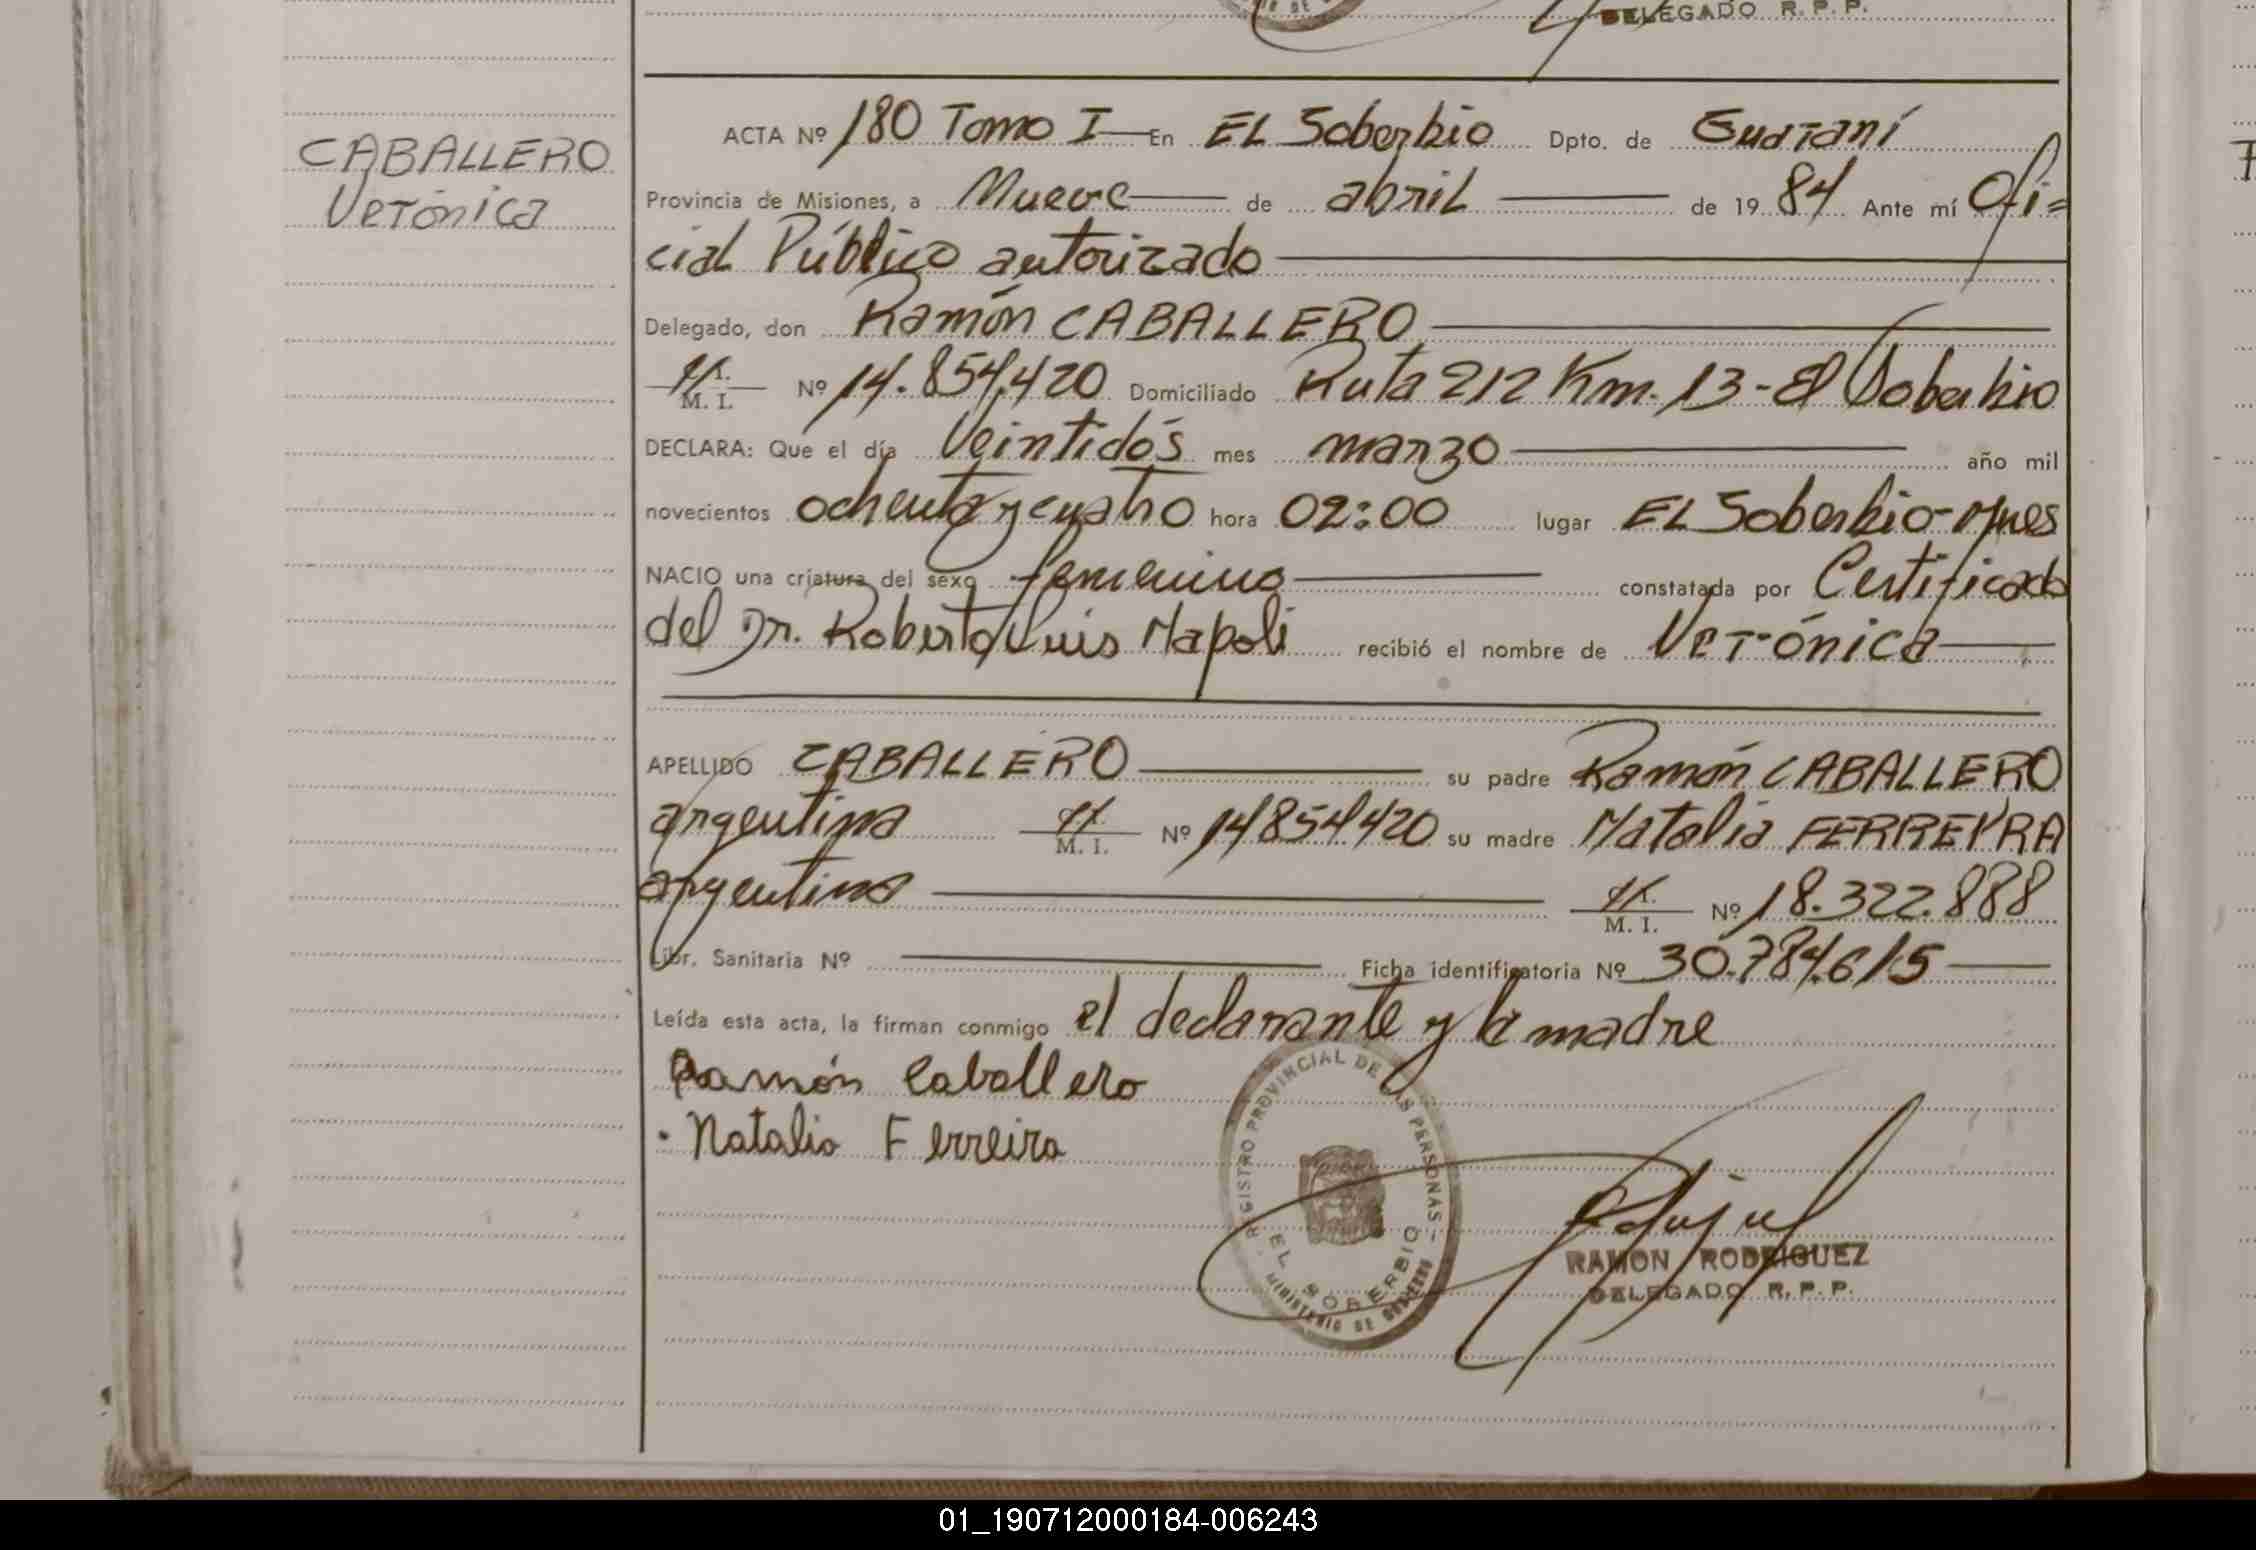 DELEGADO R. P. P.
CABALLERO
Verónica
ACTA Nº 180 Tomo I En EL Soberbio Dpto. de Guaraní
Provincia de Misiones, a Nueve de abril de 1984 Ante mí Ofi=
cial Público autorizado
Delegado, don Ramón CABALLERO
M. I. Nº 14.854.420 Domiciliado Ruta 212 Km. 13 - El Soberbio
DECLARA: Que el día Veintidós mes marzo año mil
novecientos ochenta y cuatro hora 02:00 lugar EL Soberbio - Mnes
NACIO una criatura del sexo femenino constatada por Certificado
del Dr. Roberto Luis Napoli recibió el nombre de Verónica
APELLIDO CABALLERO su padre Ramón CABALLERO
argentina M. I. Nº 14854420 su madre Natalia FERREYRA
argentina M. I. Nº 18.322.888
Libr. Sanitaria Nº Ficha identificatoria Nº 30.784.615
Leída esta acta, la firman conmigo el declarante y la madre
Ramón Caballero
Natalia Ferreira
REGISTRO PROVINCIAL DE LAS PERSONAS
EL SOBERBIO
MINISTERIO DE GOBIERNO
RAMON RODRIGUEZ
DELEGADO R. P. P.
01_190712000184-006243